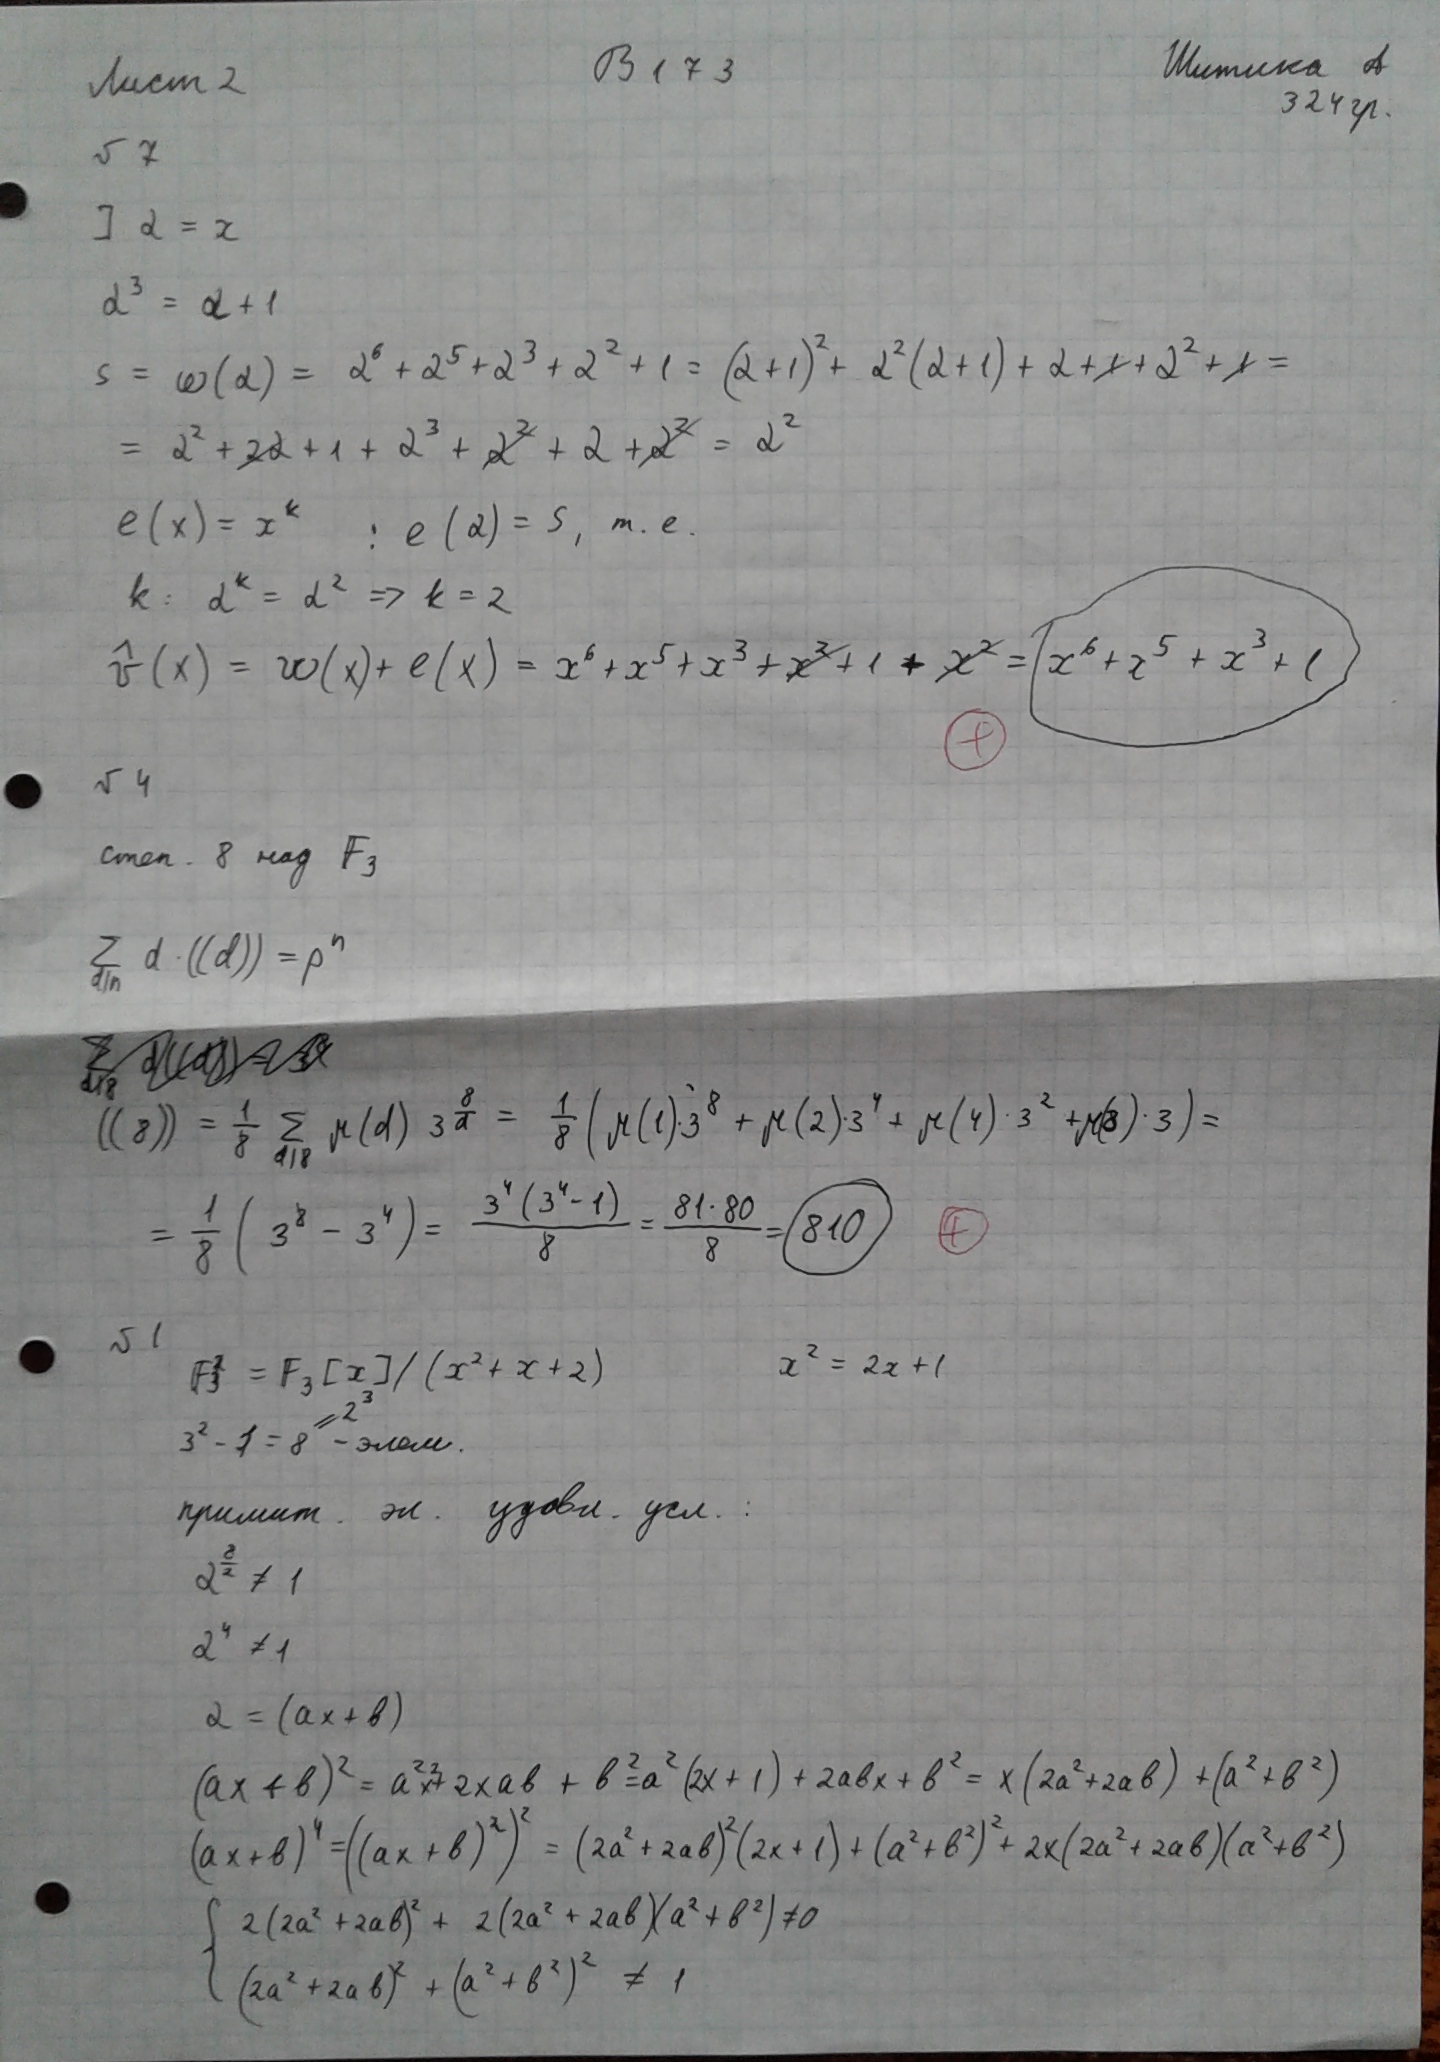 Лист 2
В 173
Шитика А
324 гр.
№ 7
] α = x
α³ = α + 1
s = w(α) = α⁶ + α⁵ + α³ + α² + 1 = (α+1)² + α²(α+1) + α + 1 + α² + 1 =
= α² + 2α + 1 + α³ + α² + α + α² = α²
e(x) = xᵏ : e(α) = s, т.е.
k: αᵏ = α² => k = 2
v̂(x) = w(x) + e(x) = x⁶ + x⁵ + x³ + x² + 1 + x² = x⁶ + x⁵ + x³ + 1
+
№ 4
степ. 8 над F₃
∑_{d|n} d·((d)) = pⁿ
((8)) = 1/8 ∑_{d|8} μ(d) 3^{8/d} = 1/8 (μ(1)·3⁸ + μ(2)·3⁴ + μ(4)·3² + μ(8)·3) =
= 1/8 (3⁸ - 3⁴) = 3⁴(3⁴-1)/8 = 81·80/8 = 810
+
№ 1
F₃² = F₃[x]/(x² + x + 2) x² = 2x + 1
3² - 1 = 8 = 2³ - элем.
примит. эл. удовл. усл.:
α^{8/2} ≠ 1
α⁴ ≠ 1
α = (ax + b)
(ax + b)² = a²x² + 2xab + b² = a²(2x + 1) + 2abx + b² = x(2a² + 2ab) + (a² + b²)
(ax + b)⁴ = ((ax + b)²)² = (2a² + 2ab)²(2x + 1) + (a² + b²)² + 2x(2a² + 2ab)(a² + b²)
{ 2(2a² + 2ab)² + 2(2a² + 2ab)(a² + b²) ≠ 0
(2a² + 2ab)² + (a² + b²)² ≠ 1